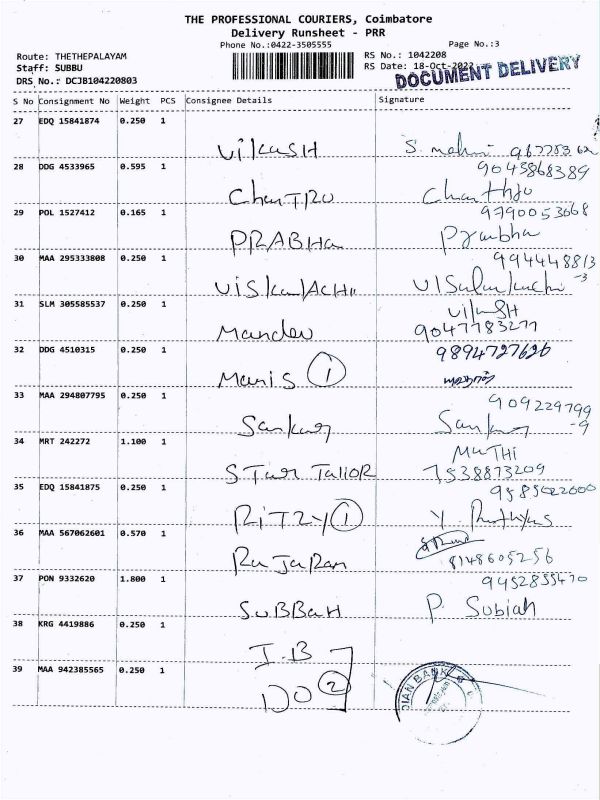 THE PROFESSIONAL COURIERS, Coimbatore
Delivery Runsheet - PRR
Phone No.:0422-3505555
Page No.:3
Route: THETHEPALAYAM
RS No.: 1042208
Staff: SUBBU
RS Date: 18-Oct-2022
DRS No.: DCJB104220803
DOCUMENT DELIVERY
S No Consignment No Weight PCS Consignee Details Signature
27 EDQ 15841874 0.250 1
VikaSH
28 DDG 4533965 0.595 1
9045868389
ChanTRU
29 POL 1527412 0.165 1
9790053668
PRABHa
30 MAA 295333808 0.250 1
994448813
-3
31 SLM 305585537 0.250 1
Mandev
9047783277
32 DDG 4510315 0.250 1
9894727626
Manis 1
33 MAA 294807795 0.250 1
909229799
-9
Sankar Sankar
34 MRT 242272 1.100 1
MuTHI
STar TailoR 7538873209
35 EDQ 15841875 0.250 1
RiTZY 1
36 MAA 567062601 0.570 1
RaJaRam 8148605256
37 PON 9332620 1.800 1
9452855470
SuBBaH P. Subiah
38 KRG 4419886 0.250 1
I.B
39 MAA 942385565 0.250 1
DO 2